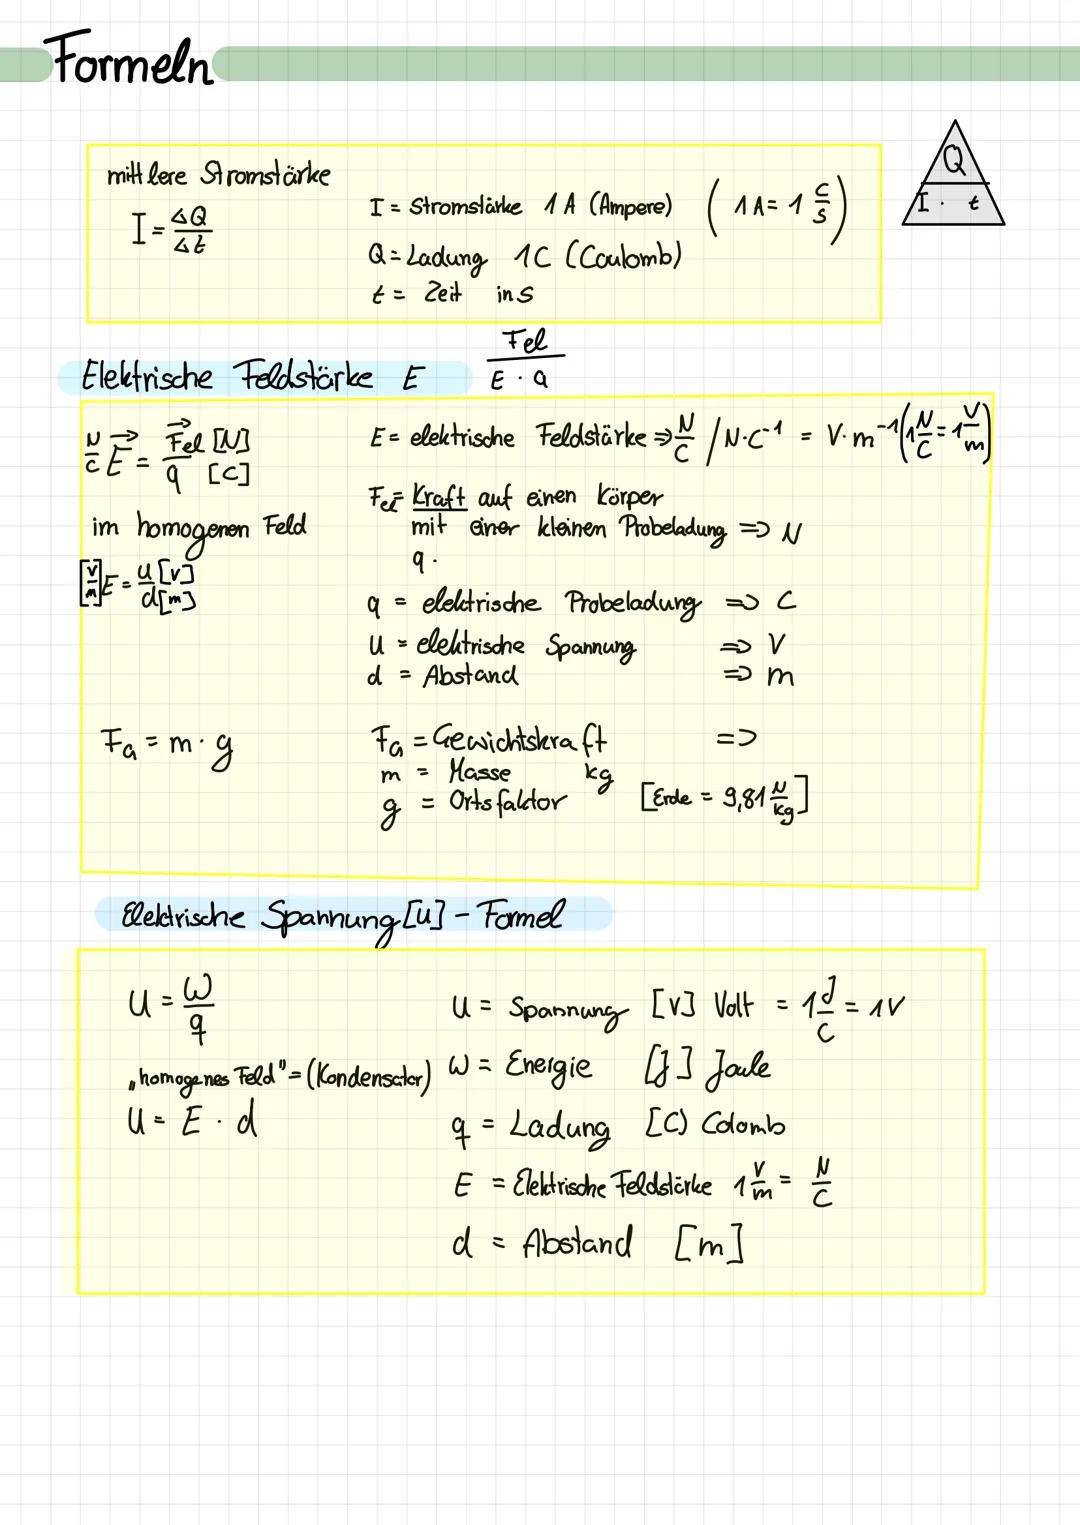 Formeln
mittlere Stromstärke
I = ΔQ/Δt
I = Stromstärke 1 A (Ampere) (1 A = 1 C/s)
Q = Ladung 1C (Coulomb)
t = Zeit in s
Q
I · t
Elektrische Feldstärke E
Fel
E · q
N/C E⃗ = F⃗el [N] / q [C]
E = elektrische Feldstärke ⇒ N/C / N·C⁻¹ = V·m⁻¹ (1 N/C = 1 V/m)
Fel = Kraft auf einen Körper
mit einer kleinen Probeladung ⇒ N
q.
im homogenen Feld
[V/m] E = U [V] / d [m]
q = elektrische Probeladung ⇒ C
U = elektrische Spannung ⇒ V
d = Abstand ⇒ m
FG = m · g
FG = Gewichtskraft =>
m = Masse kg
g = Ortsfaktor [Erde = 9,81 N/kg]
Elektrische Spannung [U] - Formel
U = W/q
U = Spannung [V] Volt = 1 J/C = 1V
„homogenes Feld" = (Kondensator)
W = Energie [J] Joule
U = E · d
q = Ladung [C) Colomb
E = Elektrische Feldstärke 1 V/m = N/C
d = Abstand [m]